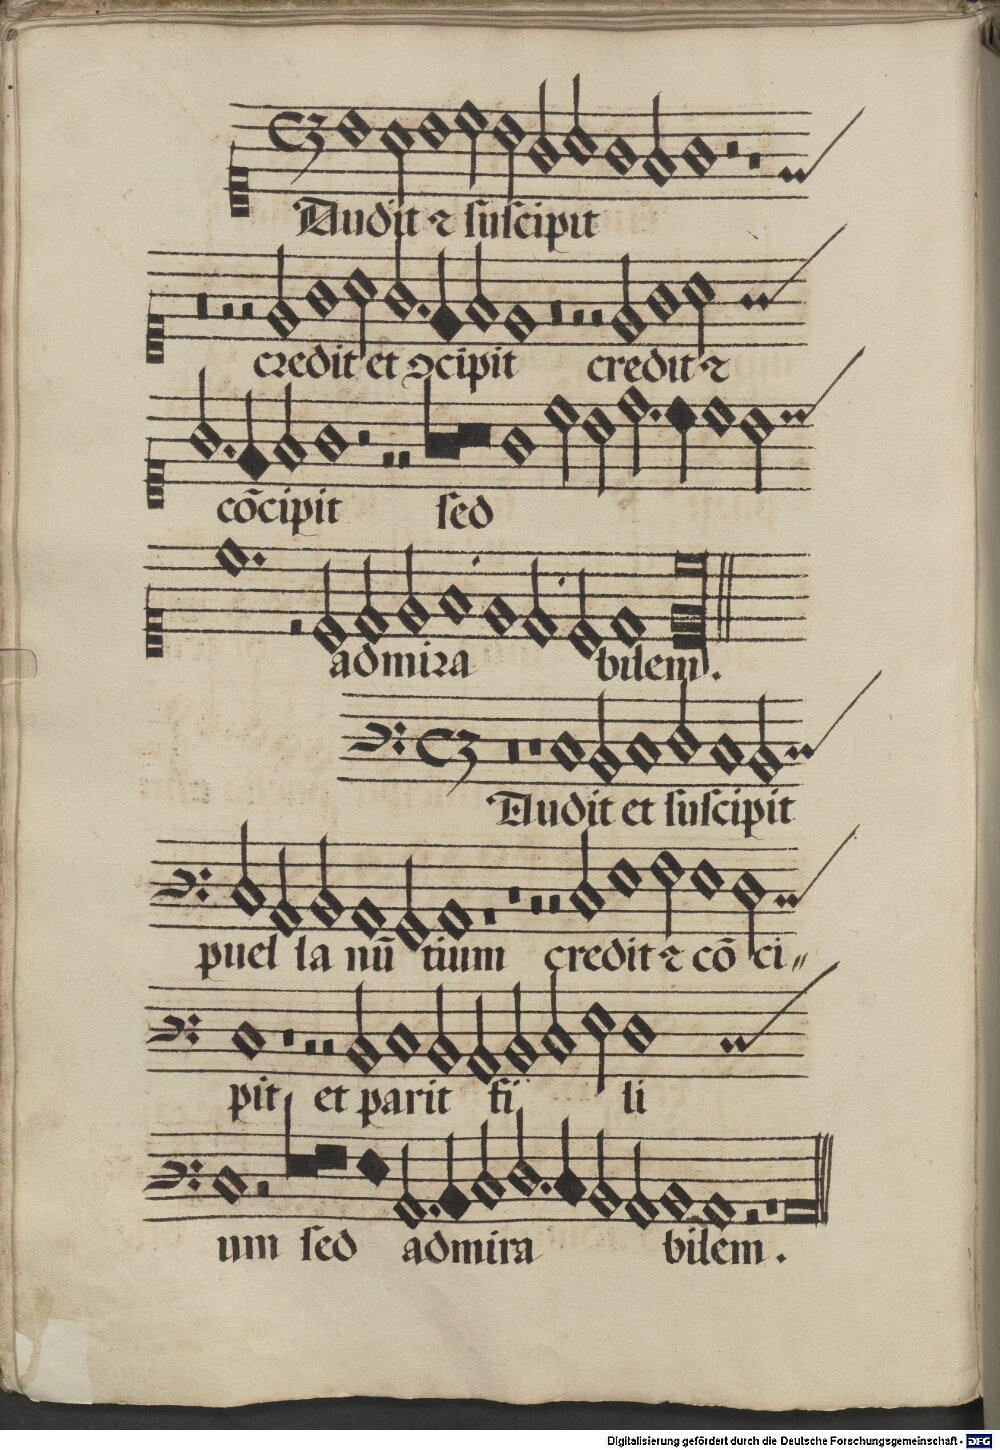 Audit ⁊ suscipit
credit et ꝯcipit credit ⁊
cōcipit sed
admira bilem.
Audit et suscipit
puel la nū tium credit ⁊ cō ci„
pit et parit fi li
um sed admira bilem.
Digitalisierung gefördert durch die Deutsche Forschungsgemeinschaft - DFG